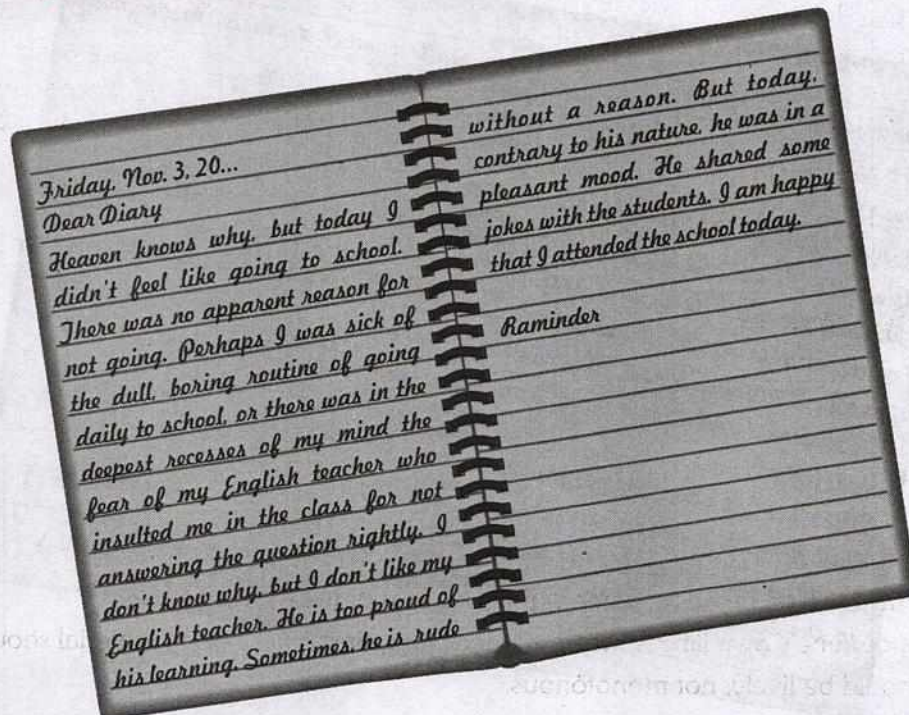 Friday, Nov. 3, 20...
Dear Diary
Heaven knows why, but today I
didn't feel like going to school.
There was no apparent reason for
not going. Perhaps I was sick of
the dull, boring routine of going
daily to school, or there was in the
deepest recesses of my mind the
fear of my English teacher who
insulted me in the class for not
answering the question rightly. I
don't know why, but I don't like my
English teacher. He is too proud of
his learning. Sometimes, he is rude
without a reason. But today,
contrary to his nature, he was in a
pleasant mood. He shared some
jokes with the students. I am happy
that I attended the school today.
Raminder